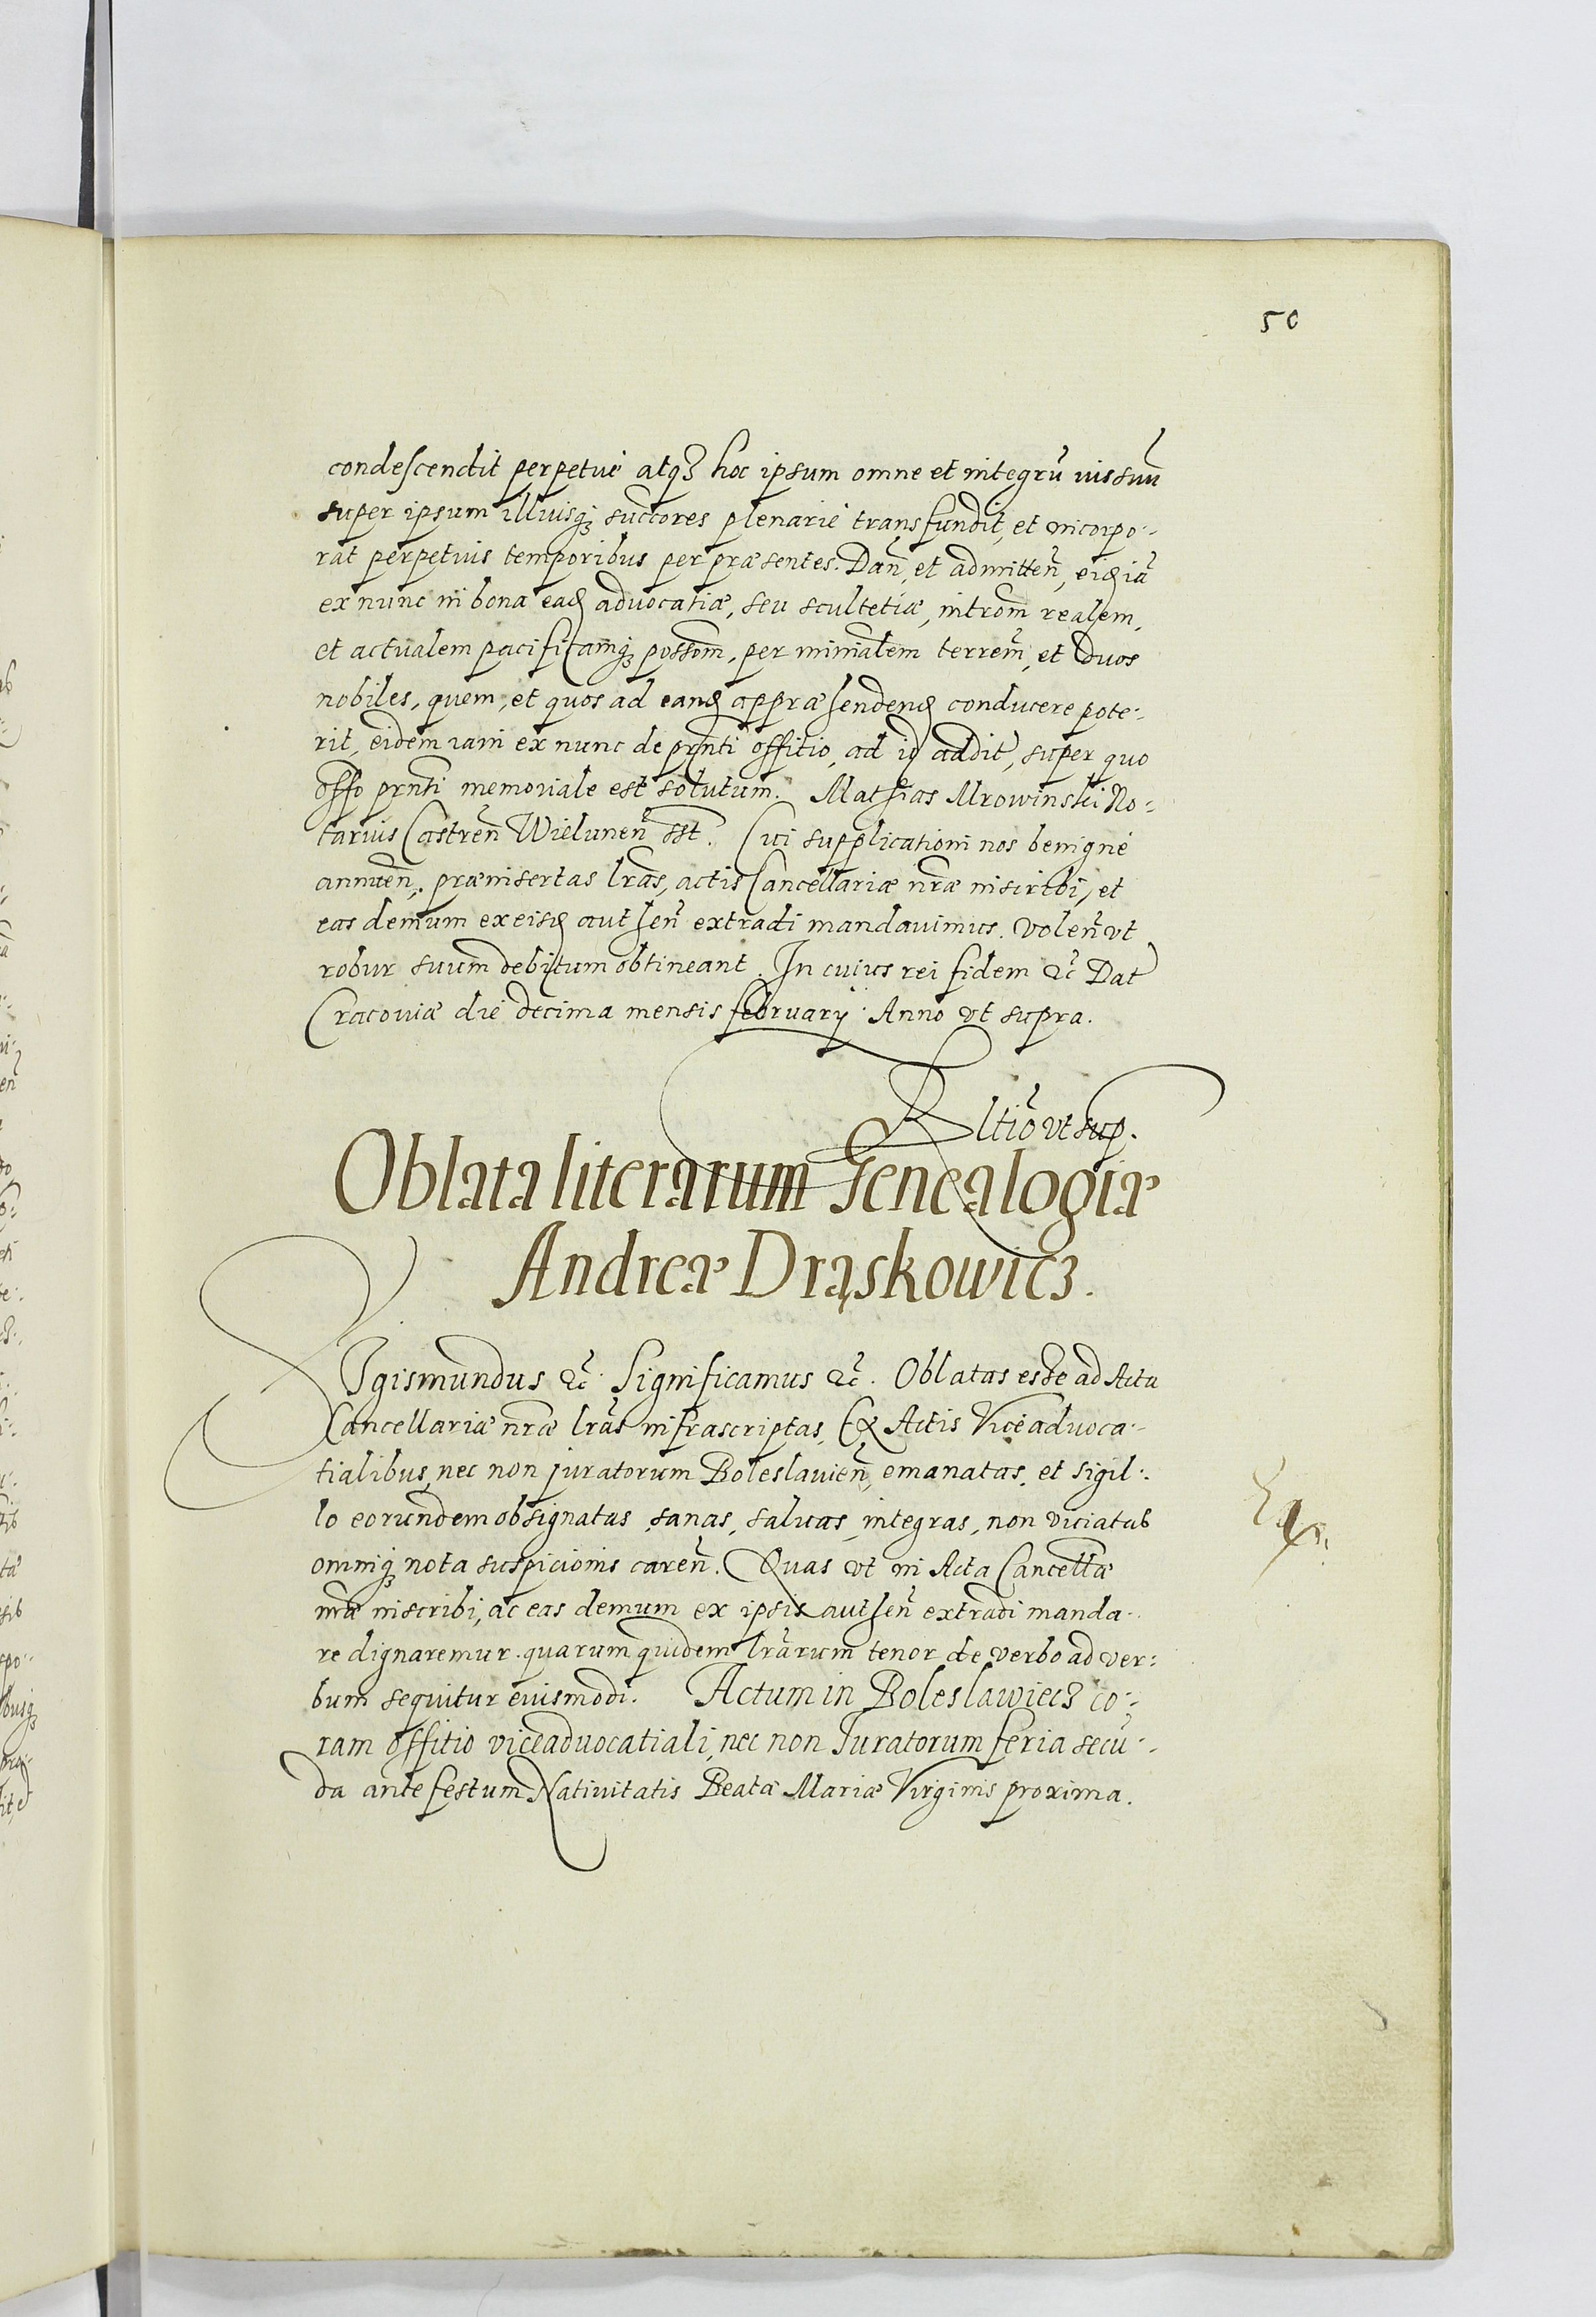 50
condescendit perpetue atq3 hoc ipsum omne et integrũ ius suũ
super ipsum illiusq3 succores plenarie transfundit, et incorpo:
rat perpetuis temporibus per præsentes. Dañ, et admitteñ, eid iã
ex nunc in bona ead advocatiæ, seu scultetiæ, introm̃ realem,
et actualem pacificamq3 possom̃, per minialem terrem̃, et duos
nobiles, quem, et quos ad eand appræhendend conducere pote:
rit, eidem iam ex nunc de prñti offitio, ad id addit, super quo
offo prñti memoriale est solutum. Mathias Mrowinski No:
tarius Castreñ Wieluneñ sst. Cui supplicationi nos benigne
annueñ, præinsertas lras, actis Cancellariæ nræ inscribi, et
eas demum ex eisd autheñ extradi mandavimus. Voleñ ut
robur suum debitum obtineant. In cuius rei fidem &c̃ Dat
Cracoviæ die decima mensis february Anno ut supra.
Rltiõ ut sup.
Oblata literarum Genealogiæ
Andreæ Drąskowicz.
Sigismundus &c̃ Significamus &c̃. Oblatas esse ad Acta
Cancellariæ nræ lras infrascriptas, Ex Actis Viceadvoca:
tialibus, nec non juratorum Boleslavieñ, emanatas, et sigil:
lo eorundem obsignatas, sanas, salvas, integras, non viciatas
omniq3 nota suspicionis careñ. Quas ut in Acta Cancellæ
nræ inscribi, ac eas demum ex ipsis autheñ extradi manda:
re dignaremur. quarum quidem lrarum tenor de verbo ad ver:
bum sequitur eiusmodi. Actum in Boleslawiecz co:
ram offitio viceadvocatiali, nec non Juratorum feria secũ:
da ante festum Nativitatis Beatæ Mariæ Virginis proxima.